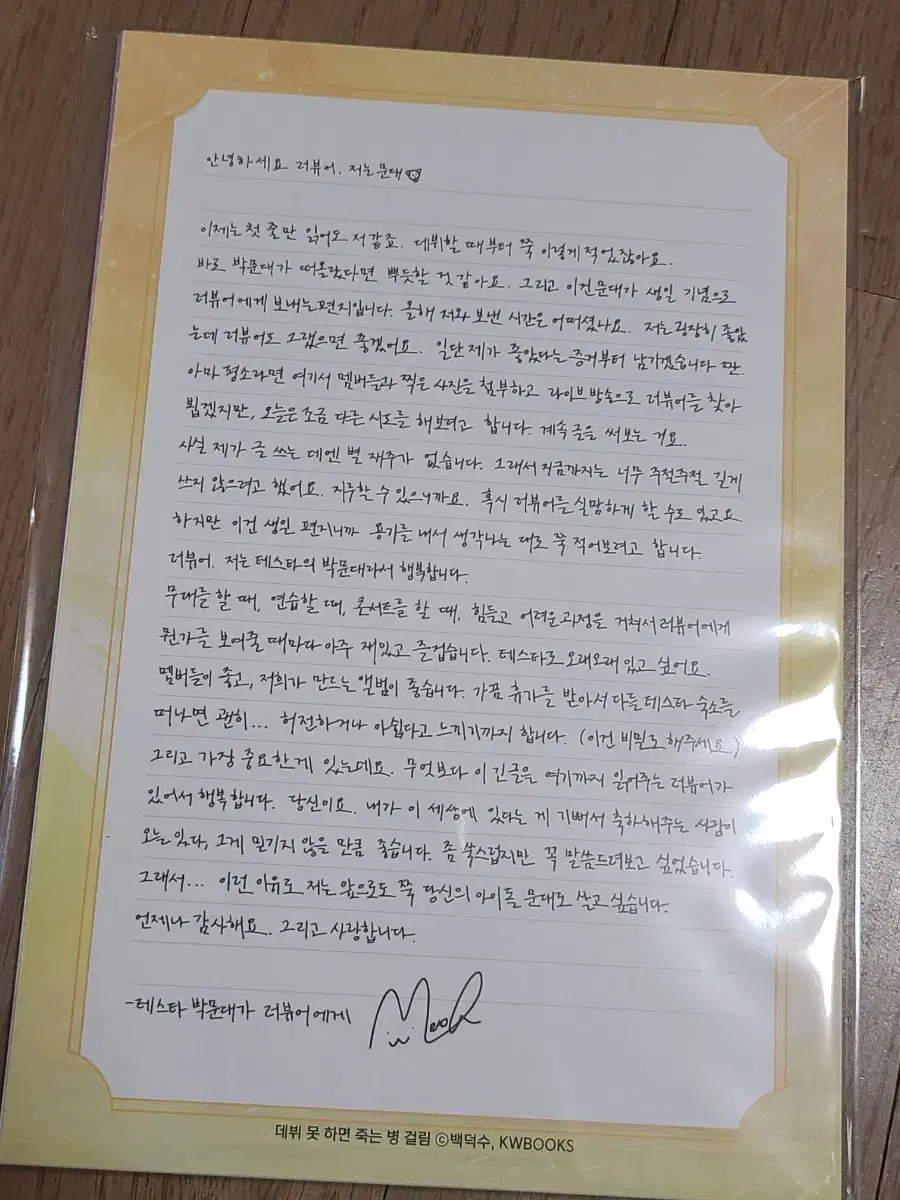 안녕하세요 러뷰어. 저는 문대
이제는 첫 줄만 읽어도 저 같죠. 데뷔할 때부터 쭉 이렇게 적었잖아요.
바로 박문대가 떠올랐다면 뿌듯할 것 같아요. 그리고 이건 문대가 생일 기념으로
러뷰어에게 보내는 편지입니다. 올해 저와 보낸 시간은 어떠셨나요. 저는 굉장히 좋았
는데 러뷰어도 그랬으면 좋겠어요. 일단 제가 좋았다는 증거부터 남기겠습니다 짠.
아마 평소라면 여기서 멤버들과 찍은 사진을 첨부하고 라이브 방송으로 러뷰어를 찾아
뵙겠지만, 오늘은 조금 다른 시도를 해보려고 합니다. 계속 글을 써보는 거요.
사실 제가 글 쓰는 데엔 별 재주가 없습니다. 그래서 지금까지는 너무 주절주절 길게
쓰지 않으려고 했어요. 지루할 수 있으니까요. 혹시 러뷰어를 실망하게 할 수도 있고요.
하지만 이건 생일 편지니까 용기를 내서 생각나는 대로 쭉 적어보려고 합니다.
러뷰어. 저는 테스타의 박문대라서 행복합니다.
무대를 할 때, 연습할 때, 콘서트를 할 때, 힘들고 어려운 과정을 거쳐서 러뷰어에게
뭔가를 보여줄 때마다 아주 재밌고 즐겁습니다. 테스타로 오래오래 있고 싶어요.
멤버들이 좋고, 저희가 만드는 앨범이 좋습니다. 가끔 휴가를 받아서 다들 테스타 숙소를
떠나면 괜히... 허전하거나 아쉽다고 느끼기까지 합니다. (이건 비밀로 해주세요.)
그리고 가장 중요한 게 있는데요. 무엇보다 이 긴 글을 여기까지 읽어주는 러뷰어가
있어서 행복합니다. 당신이요. 내가 이 세상에 있다는 게 기뻐서 축하해주는 사람이
오늘 있다, 그게 믿기지 않을 만큼 좋습니다. 좀 쑥스럽지만 꼭 말씀드려보고 싶었습니다.
그래서... 이런 이유로 저는 앞으로도 쭉 당신의 아이돌 문대로 살고 싶습니다.
언제나 감사해요. 그리고 사랑합니다.
-테스타 박문대가 러뷰어에게
데뷔 못 하면 죽는 병 걸림 ⓒ백덕수, KWBOOKS